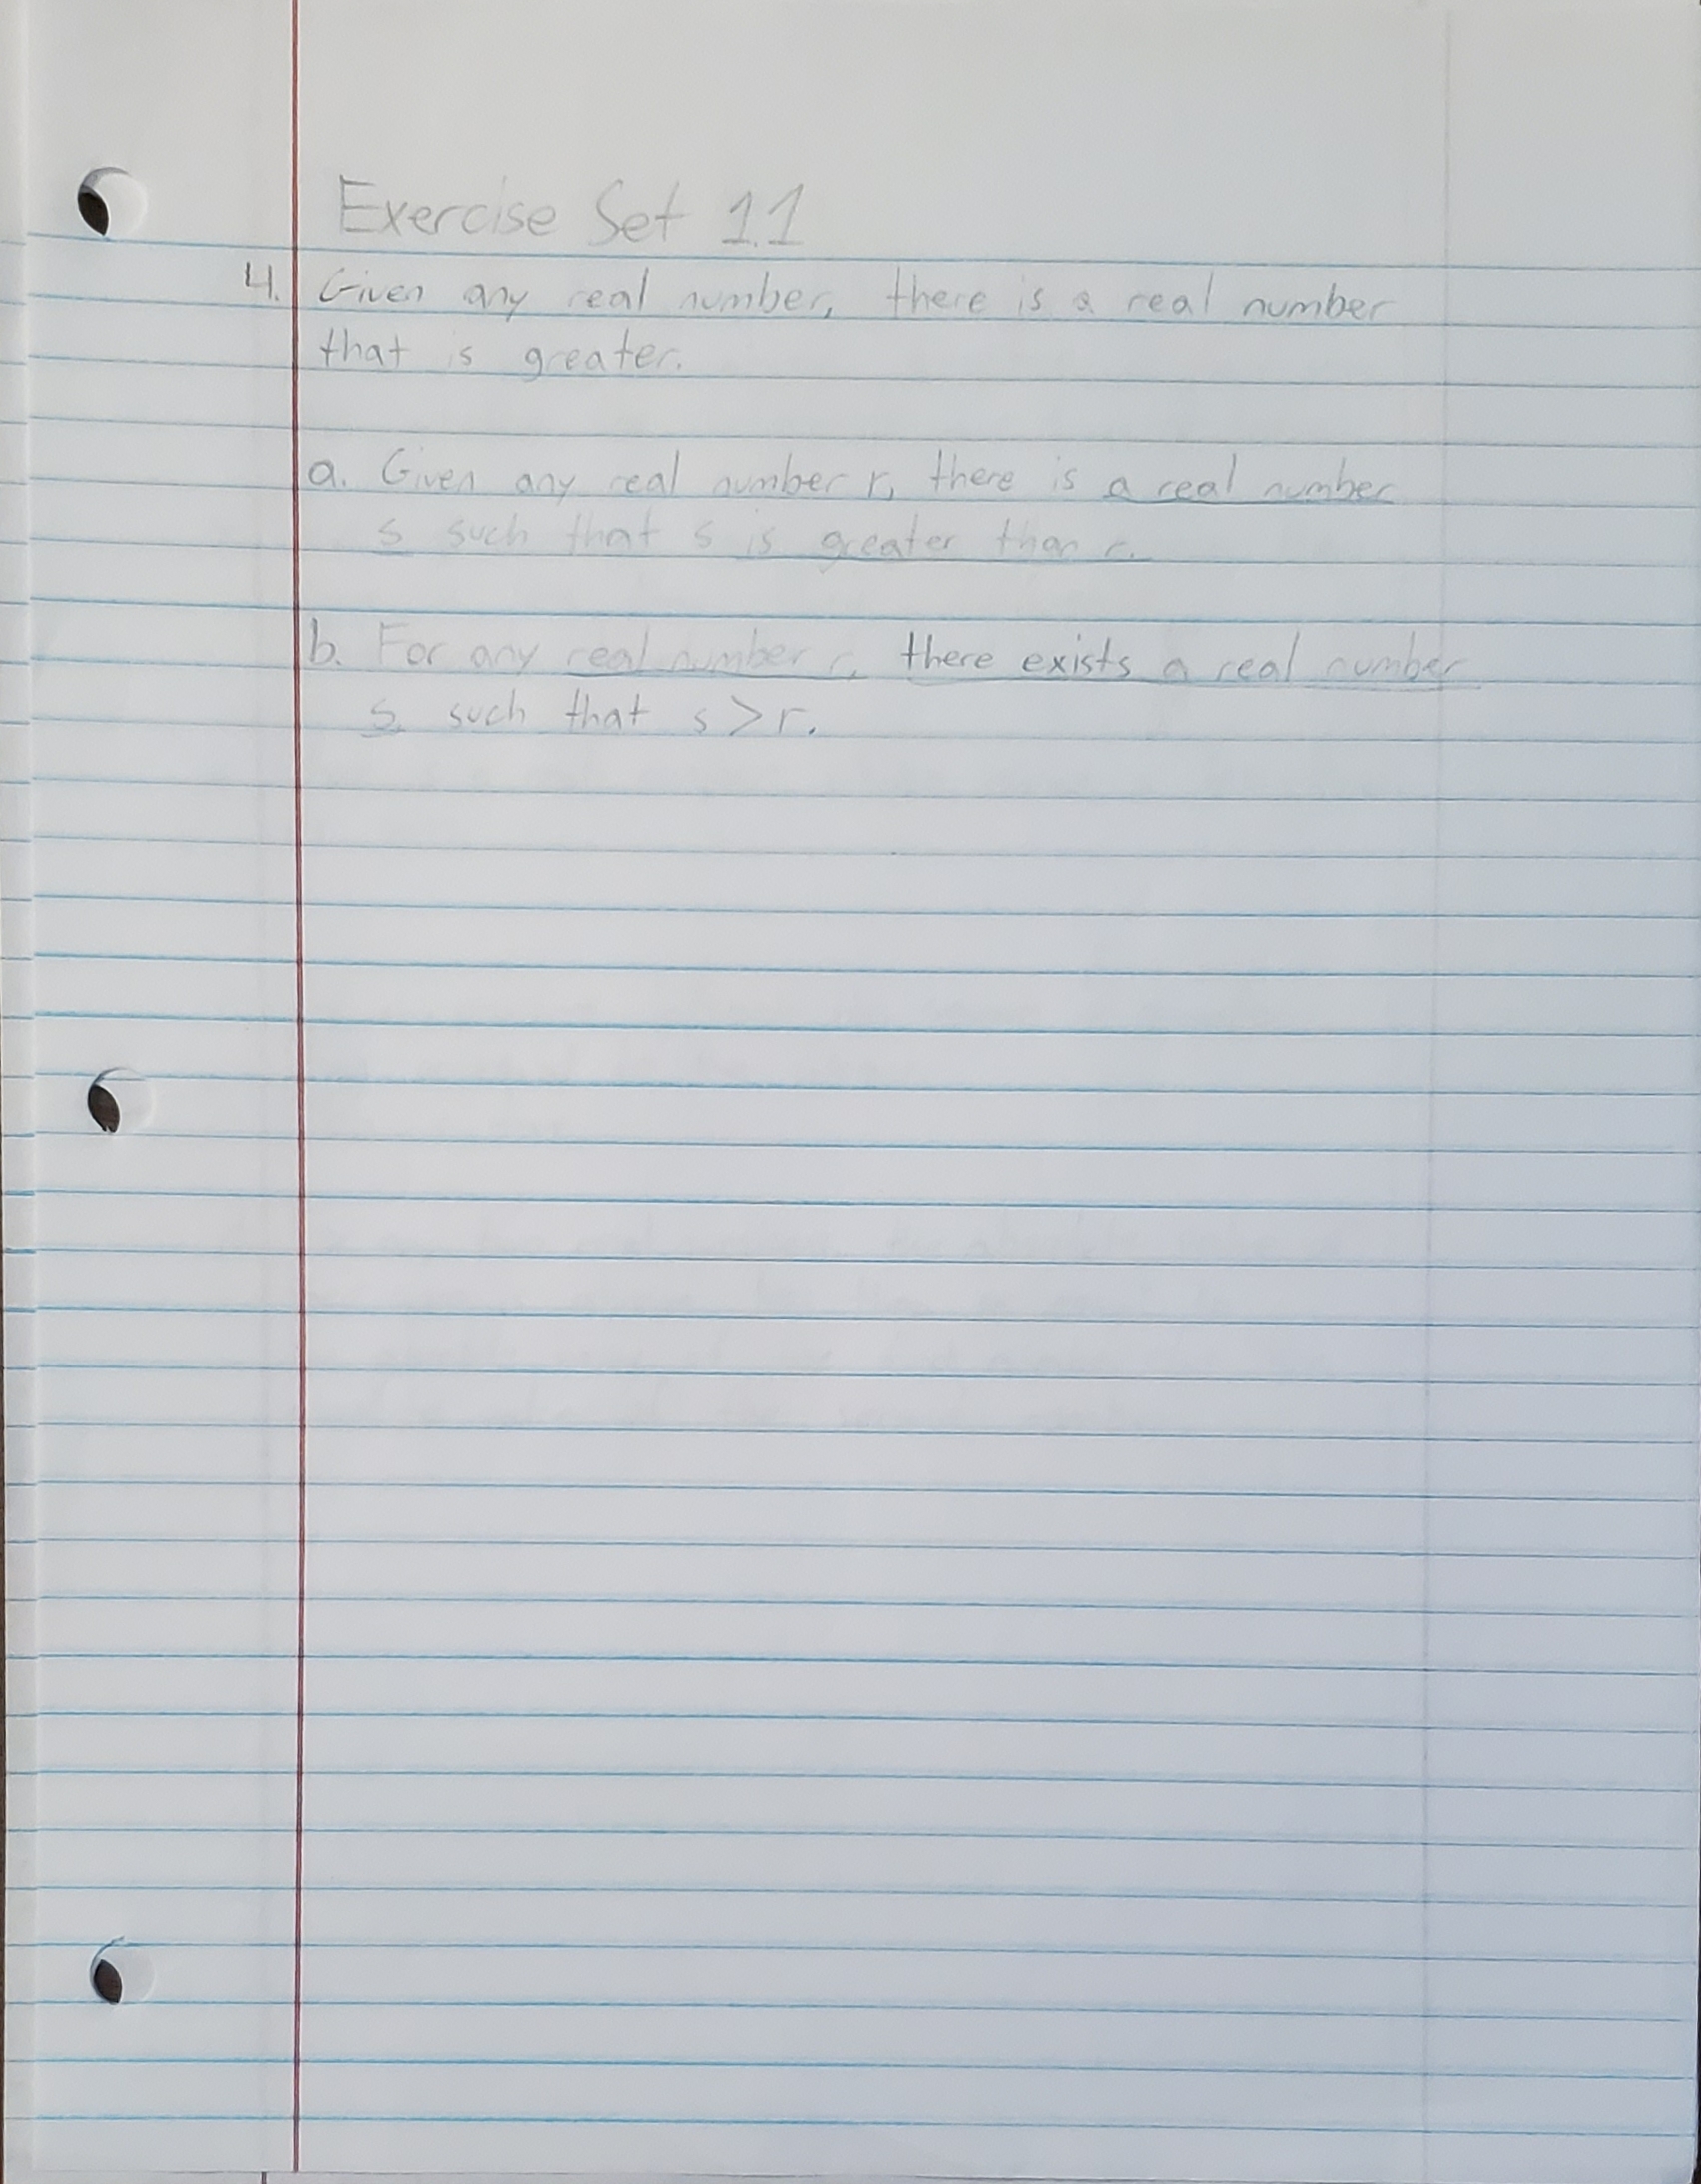 Exercise Set 1.1
4. Given any real number, there is a real number
that is greater.
a. Given any real number r, there is a real number
s such that s is greater than r.
b. For any real number r, there exists a real number
s such that s > r.